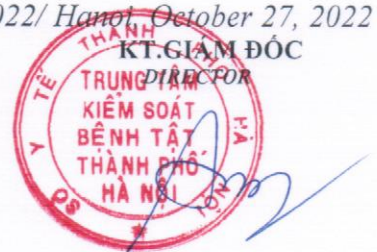 022/ Hanoi, October 27, 2022
KT.GIÁM ĐỐC
DIRECTOR
SỞ Y TẾ THÀNH PHỐ HÀ NỘI
TRUNG TÂM
KIỂM SOÁT
BỆNH TẬT
THÀNH PHỐ
HÀ NỘI